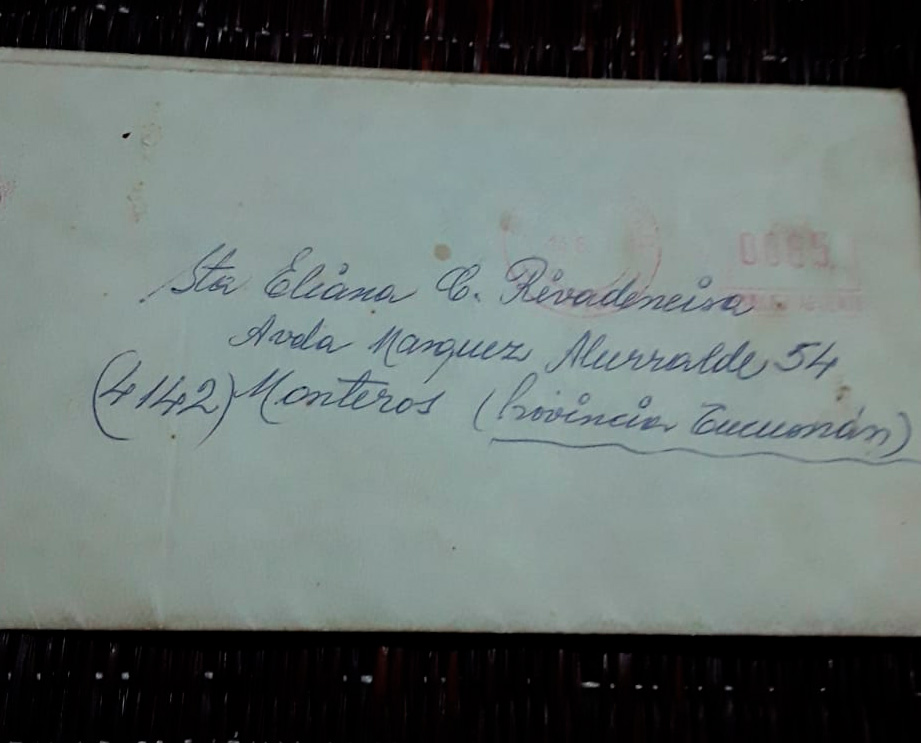 0085
Sta Eliana C. Rivadeneira
Avda Marquez Alurralde 54
(4142) Monteros (Provincia Tucumán)